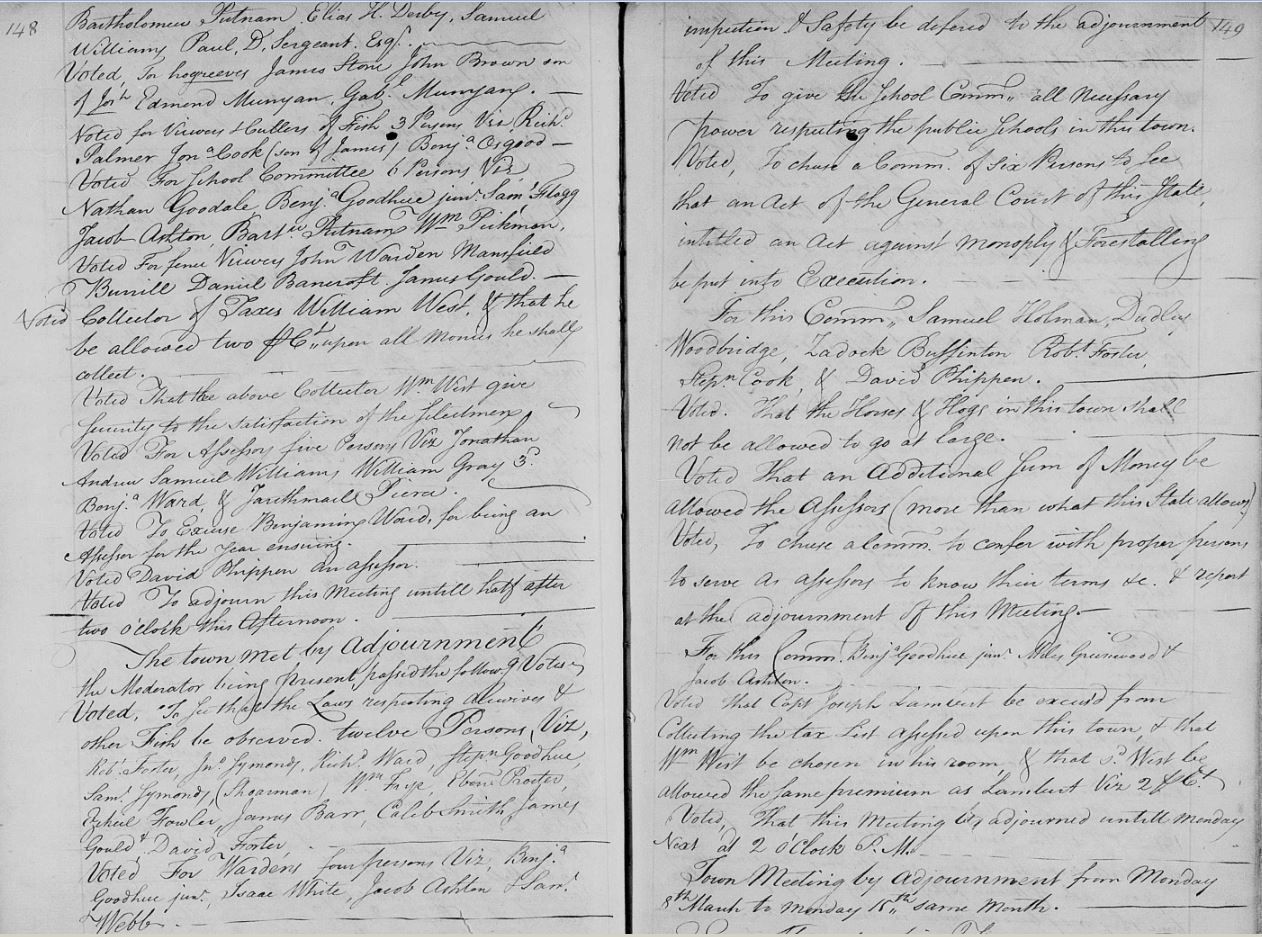 148
Bartholomew Putnam, Elias H. Derby, Samuel
Williams Paul, D, Sergeant. Esqr.
Voted, For hogreeves James Stone John Brown son
of Josh Edmond Munyan, Gabl Munyan.
Voted for Viewers & Cullers of Fish 3 Persons Viz Richd
Palmer Jona Cook (son of James) Benja Osgood
Voted For School Committee 6 Persons Viz
Nathan Goodale Benja Goodhue junr Saml Flagg
Jacob Ashton, Bartw Putnam Wm Pickman,
Voted For fence Viewers John Warden Mansfield
Burrill Daniel Bancroft. James Gould.
Voted Collector of Taxes William West, & that he
be allowed two ⅌ Ct,, upon all monies he shall
collect.
Voted That the above Collector Wm West give
Security to the Satisfaction of the Selectmen
Voted For Assessors five Persons Viz Jonathan
Andrew Samuel Williams William Gray 3d
Benja Ward, & Jarethmael Pierce.
Voted To Excuse Benjamin Ward, for being an
Assessor for the Year ensuing.
Voted David Phippen an assessor.
Voted To adjourn this Meeting untill half after
two o'Clock this Afternoon.
The town met by Adjournment
the Moderator being present, passed the followg Votes
Voted, To See that the Laws respecting alewives &
other Fish be observed. twelve Persons Viz,
Robt Foster, Jno Symonds, Richd Ward Stepn Goodhue
Saml Symonds, (Shoarman) Wm Frye, Ebenr Procter,
Ezkiel Fowler, James Barr, Caleb Smith James
Gould & David Foster
Voted For Wardens four persons Viz, Benja
Goodhue junr, Isaac White, Jacob Ashton & Saml
Webb.
149
inspection & Safety be defered to the adjournment
of this Meeting.
Voted To give the School Comm,, all Necessary
power respecting the public Schools in this town.
Voted, To chuse a Comm. of Six Persons to See
that an Act of the General Court of this State,
intitled an Act against Monoply & Forestalling
be put into Execution.
For this Comm,, Samuel Holman, Dudley
Woodbridge, Zadock Buffinton Robt Foster,
Stepn Cook, & David Phippen.
Voted. That the Horses & Hogs in this town shall
not be allowed to go at large.
Voted That an Additional Sum of Money be
allowed the Assessors (more than what this State allows)
Voted, To chuse a Comm. to confer with proper persons
to serve as assessors to know their terms &c. & report
at the adjournment of this Meeting.
For this Comm. Benja Goodhue junr Miles Greenwood &
Jacob Ashton.
Voted that Capt Joseph Lambert be excus'd from
Collecting the tax List assessed upon this town, & that
Wm West be chosen in his room, & that sd West be
allowed the same premium as Lambert Viz 2 ⅌ Ct.
Voted, That this Meeting be adjourned untill Monday
Next at 2 o'Clock P. M.
Town Meeting by Adjournment from Monday
8th March to Monday 15th,, same Month.